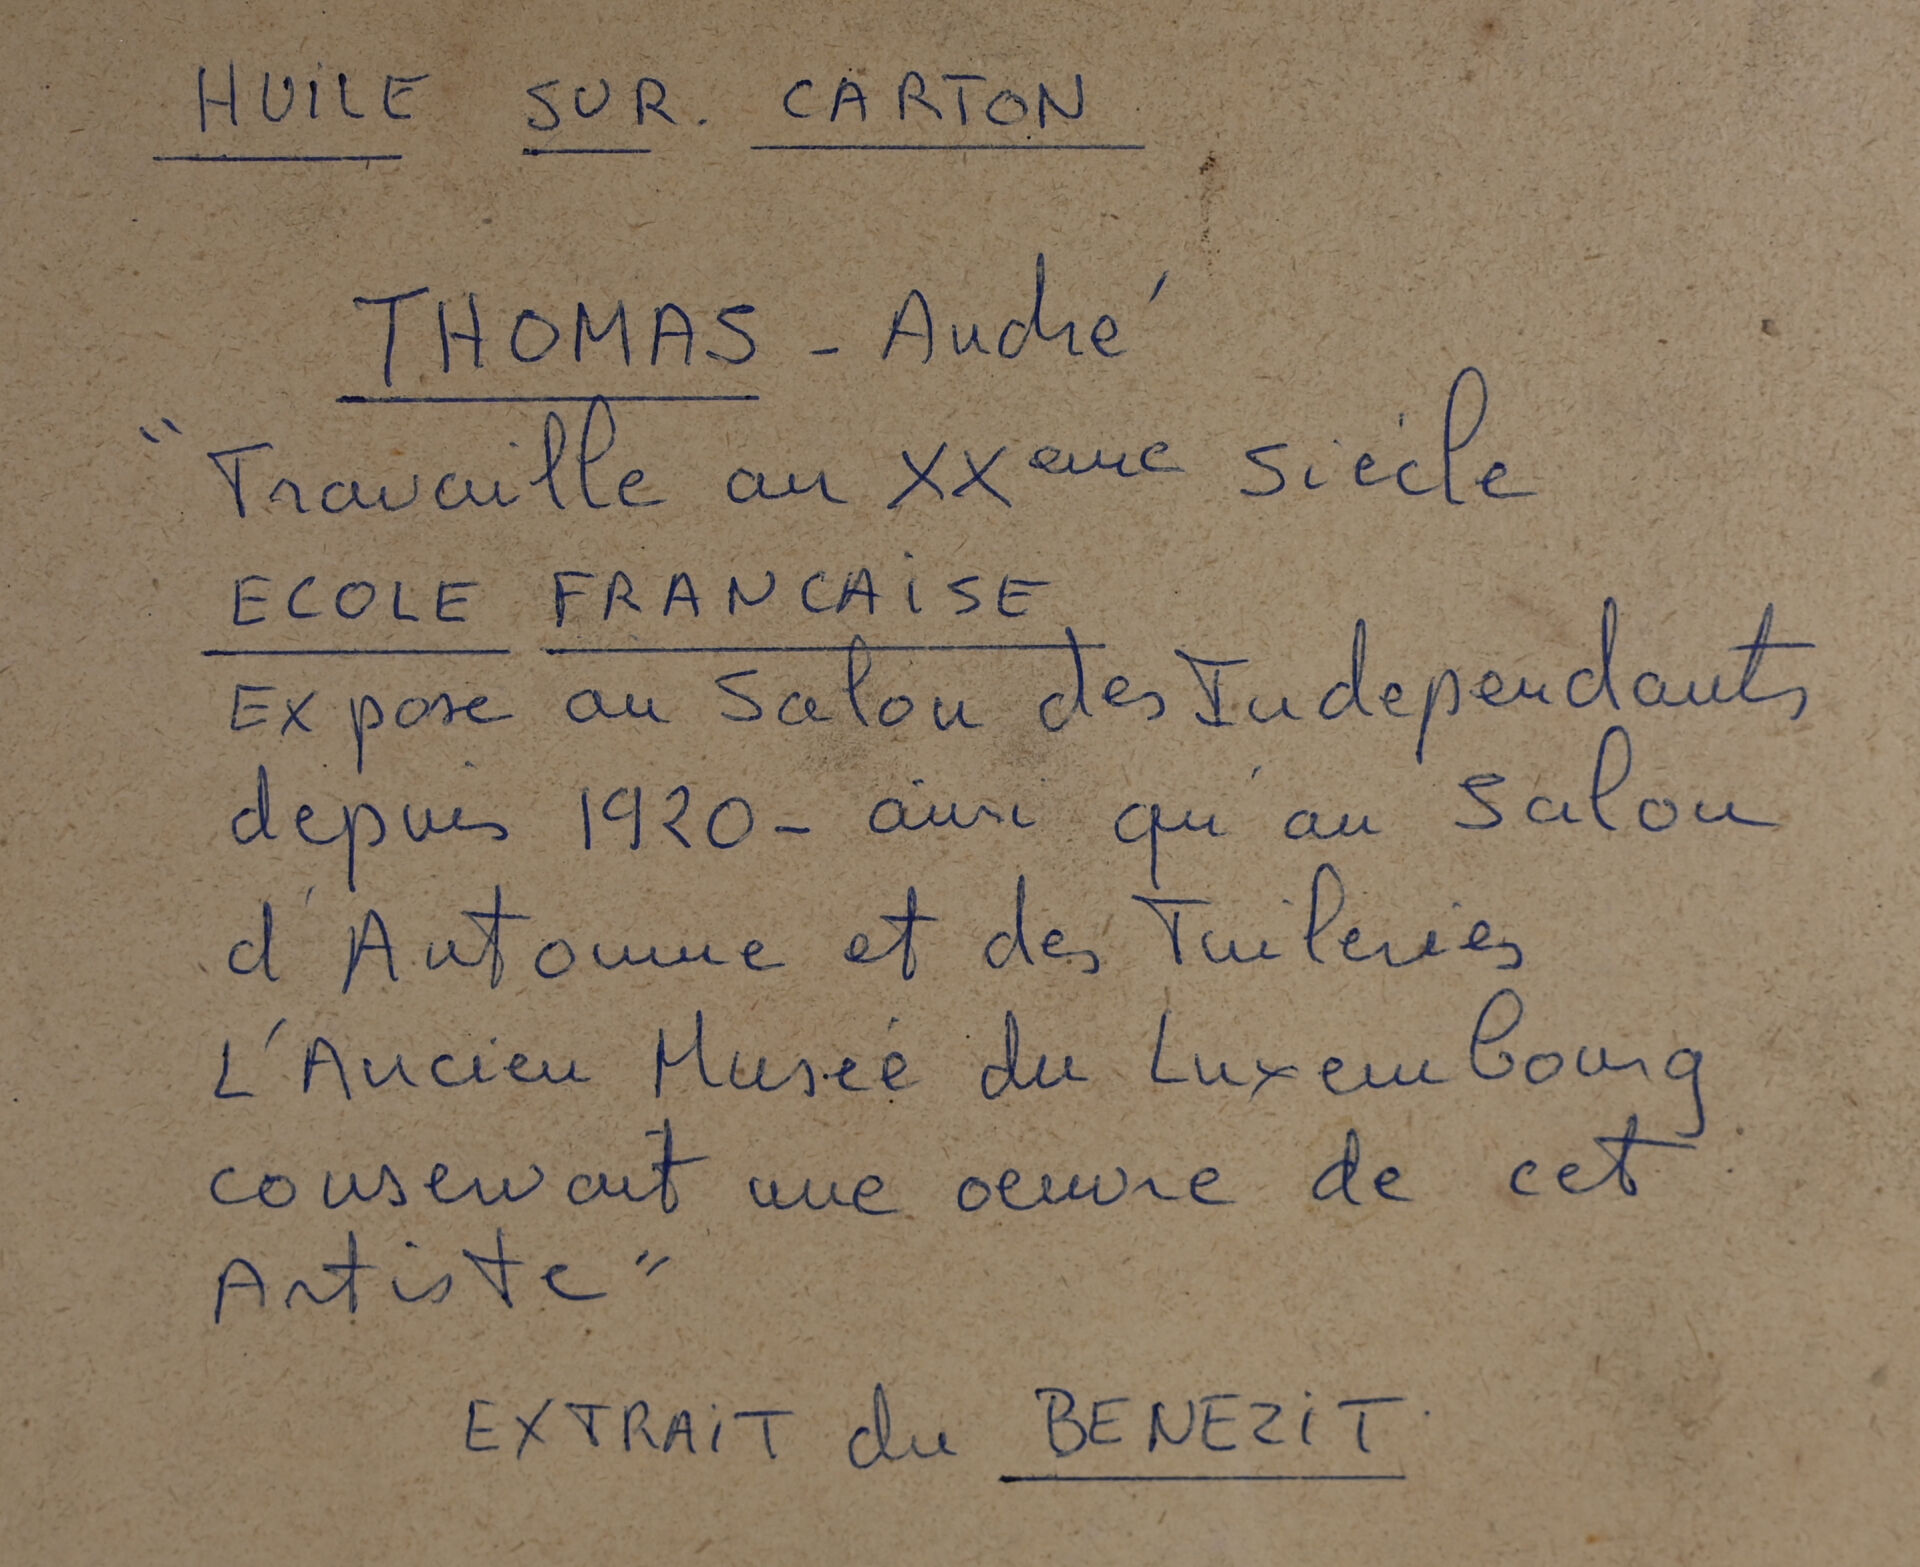 HUILE SUR. CARTON
THOMAS - André
"Travaille au XXeme siécle
ECOLE FRANCAISE
Expose au Salon des Independants
depuis 1920 - ainsi qu'au Salon
d'Automne et des Tuileries
L'Ancien Museé du Luxembourg
conservait une oeuvre de cet
Artiste"
EXTRAIT du BENEZIT.